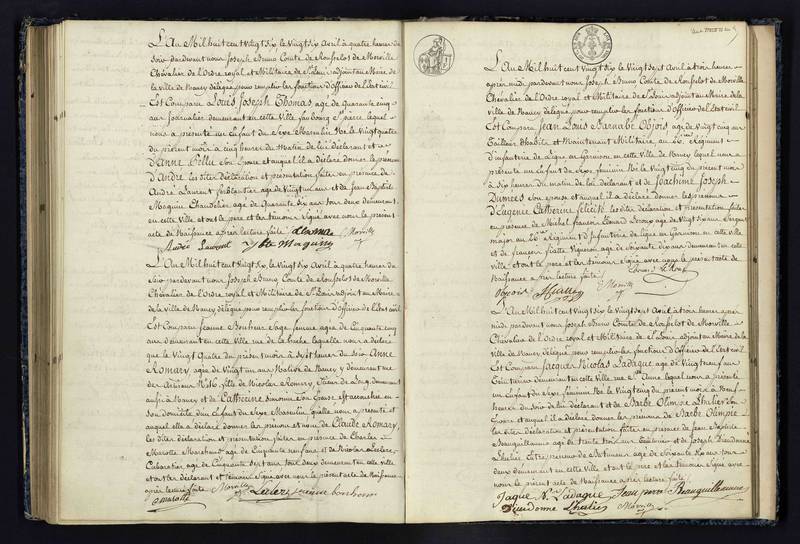 L'An Mil huit cent Vingt Six le Vingt Six Avril à quatre heures du
Soir pardevant nous Joseph Bruno Comte de Rousselot de Morville
Chevalier de l'Ordre royal et Militaire de St Louis adjoint au Maire de
la ville de Nancy délégué pour remplir les fonctions d'Officier de l'état civil
Est Comparu Louis Joseph Thomas agé de Quarante cinq
ans Journalier demeurant en cette Ville faubourg St pierre lequel
nous a présenté un Enfant du Sexe Masculin Né le Vingt quatre
du présent mois à cinq heures du Matin de lui déclarant et
d'Anne Pelle Son Epouse et auquel il a déclaré donner le prénom
d'André les dites déclaration et présentation faites en présence de
André Laurent ferblantier age de Vingt huit ans et de Jean Baptiste
Maguin Chandelier age de Quarante Six ans tous deux demeurant
en cette Ville et ont le père et les témoins Signé avec nous le présent
acte de Naissance après lecture faite Morville
André Laurent Maguin
L'An Mil huit cent Vingt Six le Vingt Six Avril à quatre heures du
Soir pardevant nous Joseph Bruno Comte de Rousselot de Morville
Chevalier de l'Ordre royal et Militaire de St Louis adjoint au Maire
de la Ville de Nancy délégué pour remplir les fonctions d'Officier de l'état civil
Est Comparu Jeanne Bonheur Sage femme agée de Cinquante cinq
ans demeurant en cette Ville rue de la hache laquelle nous a déclaré
que le Vingt Quatre du présent mois à Sept heures du Soir Anne
Romary, agée de Vingt un ans Native de Nancy y demeurant rue
des Artisans fille de Nicolas Romary, demeurant
aussi à Nancy et de Catherine Simonin Son Epouse est accouchée en
Son domicile d'un Enfant du Sexe Masculin qu'elle nous a présenté et
auquel elle a déclaré donner les prénom et nom de Claude Romary
les dites déclaration et présentation faites en présence de Charles
Marotte Marchand agé de Cinquante neuf ans et de Nicolas Leclerc
Cabaretier agé de Cinquante Sept ans tous deux demeurant en cette Ville
et ont la déclarante et témoins Signé avec nous le présent acte de Naissance
après lecture faite Morville
Marotte Leclerc jeanne bonheur
L'An Mil huit cent Vingt Six le Vingt Sept Avril à trois heures
après midi pardevant nous Joseph Bruno Comte de Rousselot de Morville
Chevalier de l'Ordre royal et Militaire de St Louis adjoint au Maire de la
ville de Nancy délégué pour remplir les fonctions d'Officier de l'état civil
Est Comparu Jean Louis Barnabé Objois agé de Vingt cinq ans
Tailleur d'habits et Maintenant Militaire, au Régiment
d'infanterie de Ligne en Garnison en cette Ville de Nancy lequel nous a
présenté un Enfant du Sexe féminin Né le Vingt cinq du présent mois
à Dix heures du matin de lui déclarant et de Joachime Joseph
Dumées Son épouse et auquel il a déclaré donner les prénoms
d'Eugénie Catherine félicité les dites déclaration et présentation faites
en présence de Michel françois Edouard Leroux agé de Vingt Six ans Sergent
major au Régiment d'Infanterie de Ligne en Garnison en cette Ville
et de françois Vigneron agé de Soixante dix ans demeurant en cette
Ville et ont le père et les témoins Signé avec nous le présent acte de
Naissance après lecture faite
Objois Morville
L'An Mil huit cent Vingt Six le Vingt Sept Avril à trois heures après
midi pardevant nous Joseph Bruno Comte de Rousselot de Morville
Chevalier de l'Ordre royal et Militaire de St Louis adjoint au Maire de la
Ville de Nancy délégué pour remplir les fonctions d'Officier de l'état civil
Est Comparu Jacques Nicolas Ladague agé de Vingt neuf ans
demeurant en cette Ville rue Ste Anne lequel nous a présenté
un Enfant du Sexe féminin Né le Vingt cinq du présent mois à Neuf
heures du Soir de lui déclarant et de Barbe Olimpie Lhuilier Son
Epouse et auquel il a déclaré donner les prénoms de Barbe Olimpie
les dites déclaration et présentation faites en présence de Jean Baptiste
Beauguillaume agé de trente trois ans et de Joseph Dieudonné
Lhuilier agé de Soixante Six ans tous
deux demeurant en cette Ville et ont le père et les témoins Signé avec
nous le présent acte de Naissance après lecture faite
Jaque N. Ladague Jean Beauguillaume
Dieudonné Lhuilier Morville